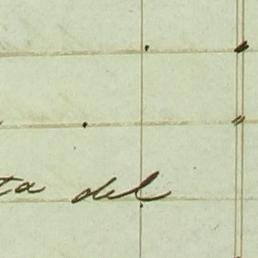 ta del